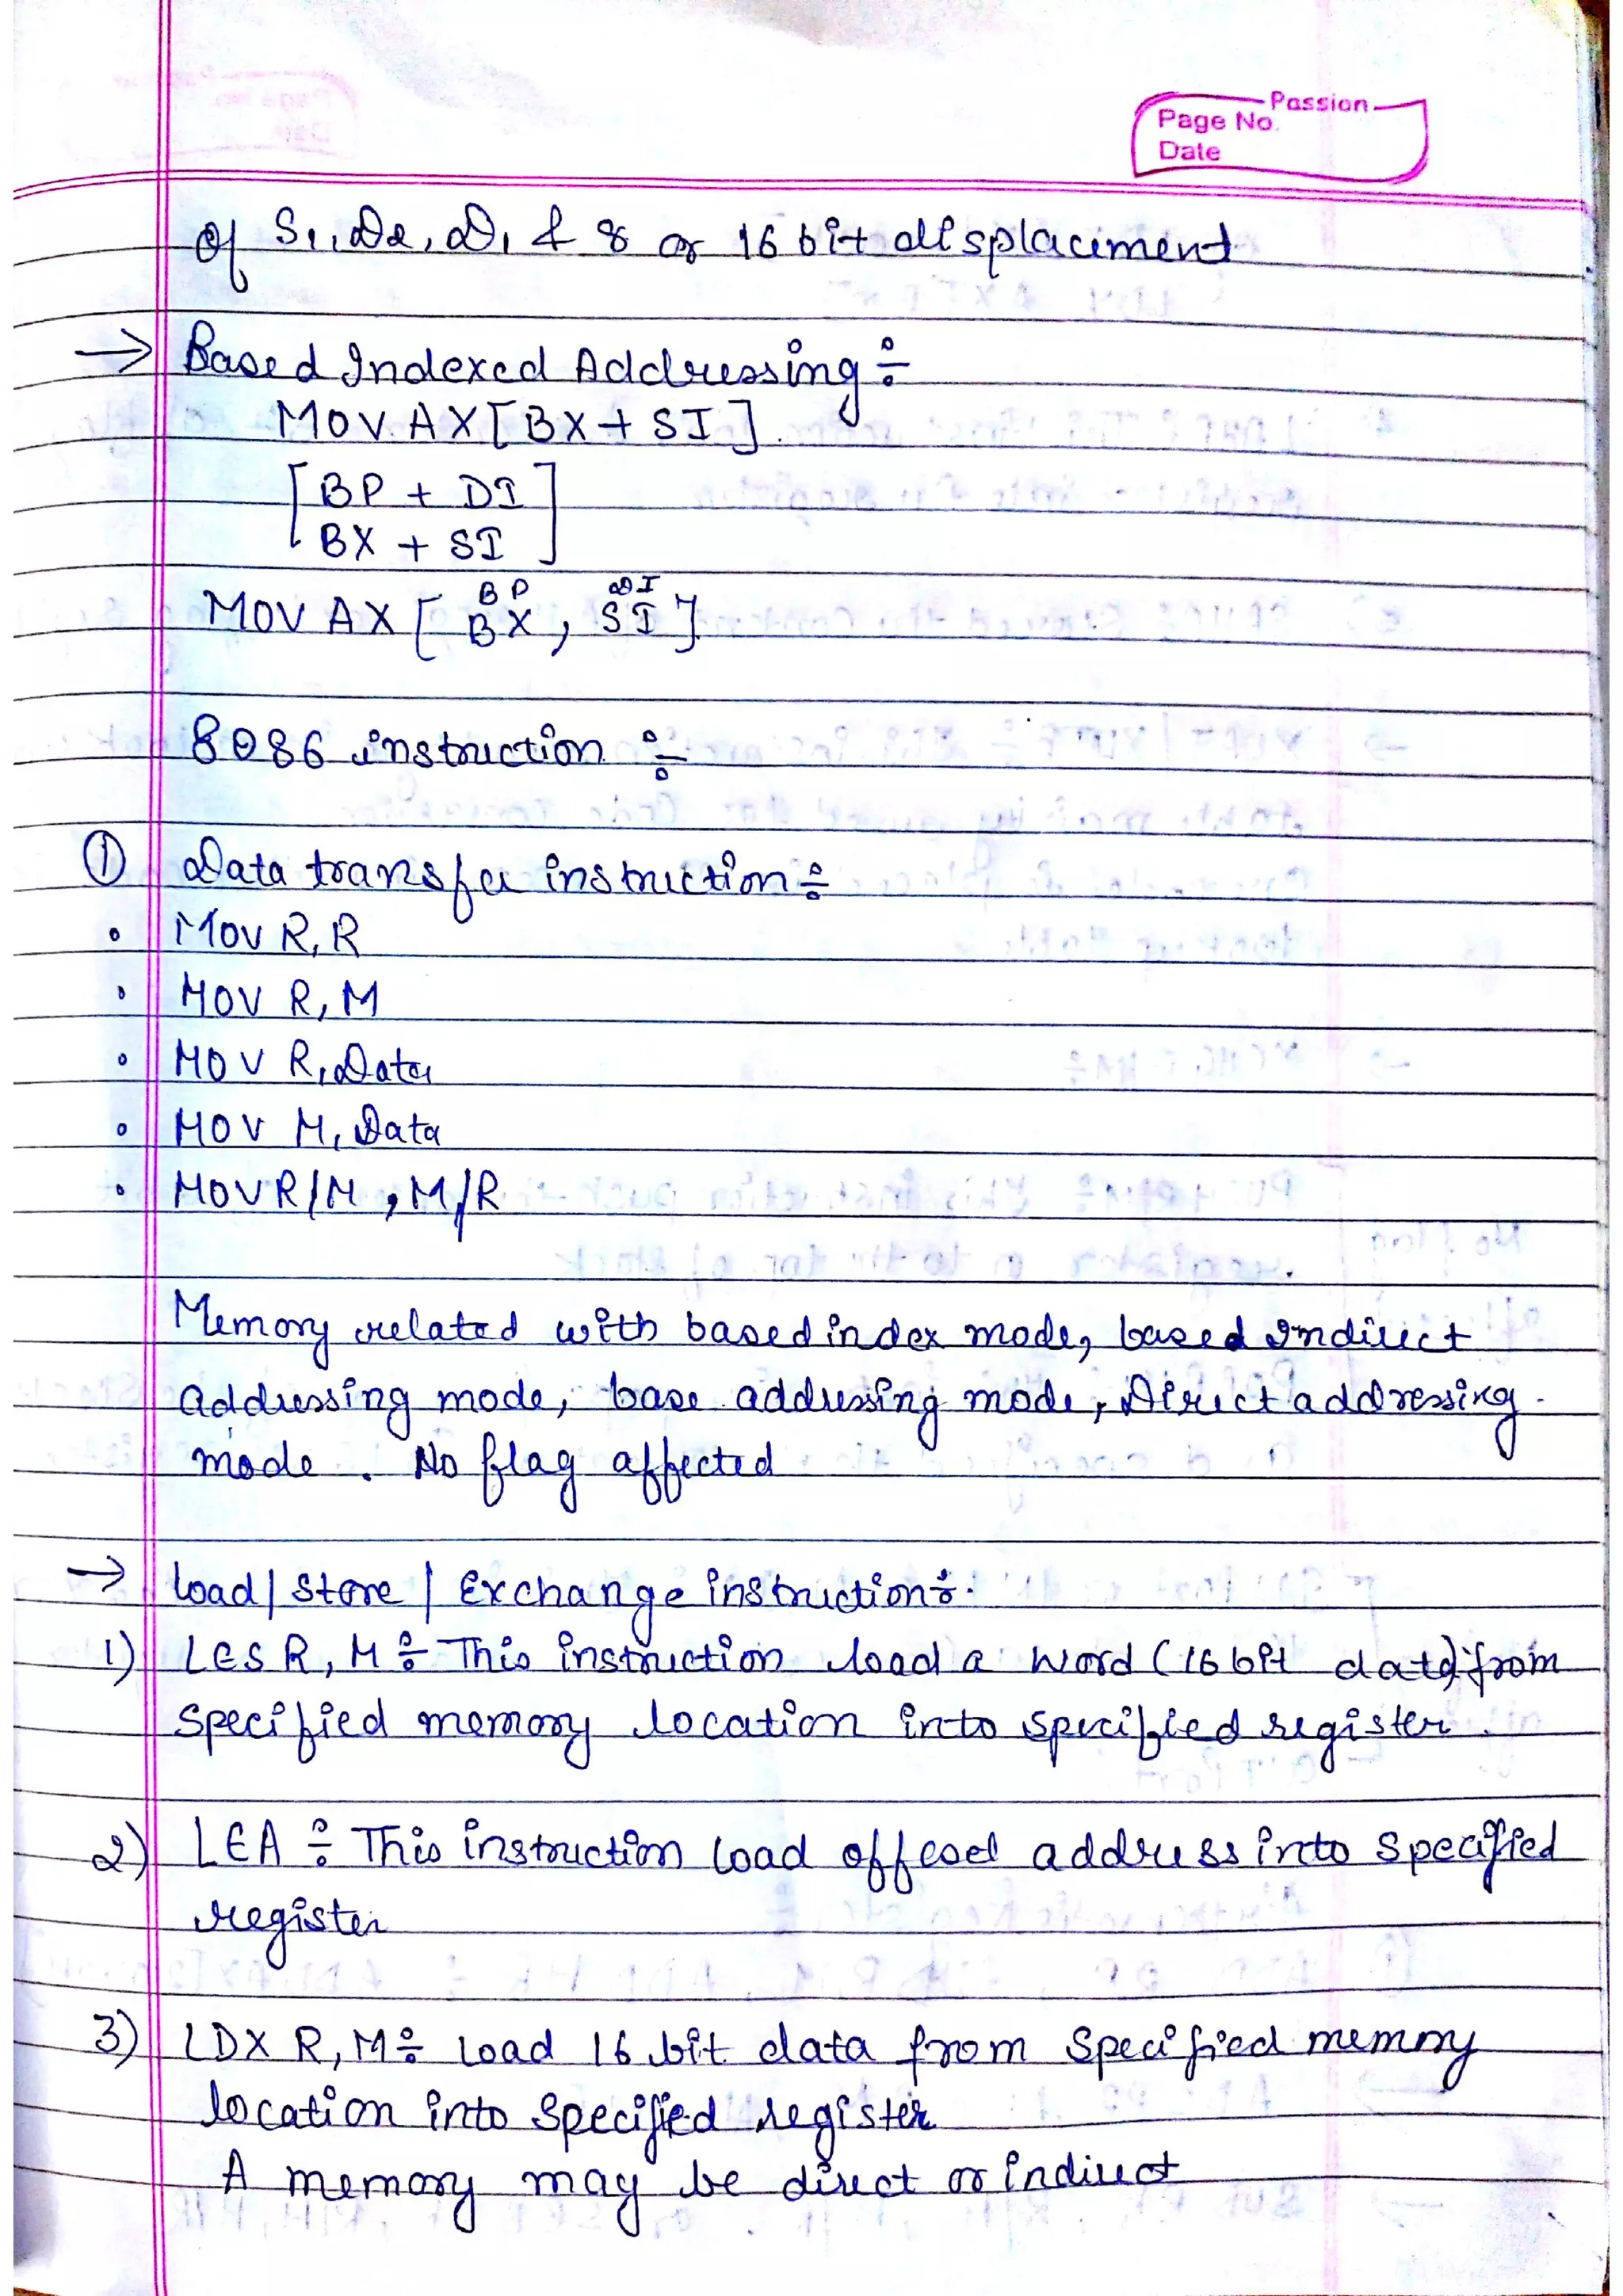 Passion
Page No.
Date
of S1, D2, D1 & 8 or 16 bit displacement
→ Based Indexed Addressing ÷
MOV. AX [BX + SI].
[BP + DI]
[BX + SI]
BP DI
MOV AX [BX, SI]
8086 instruction ÷
① Data transfer instruction ÷
• MOV R, R
• MOV R, M
• MOV R, Data
• MOV M, Data
• MOV R/M, M/R
Memory related with based index mode, based Indirect
addressing mode, base addressing mode, Direct addressing
mode. No flag affected
→ load / Store / Exchange instruction ÷
1) LES R, M ÷ This instruction load a word (16 bit data) from
specified memory location into specified register.
2) LEA ÷ This instruction load offesel address into specified
register
3) LDX R, M ÷ Load 16 bit data from specified memory
location into specified register
A memory may be direct or indirect